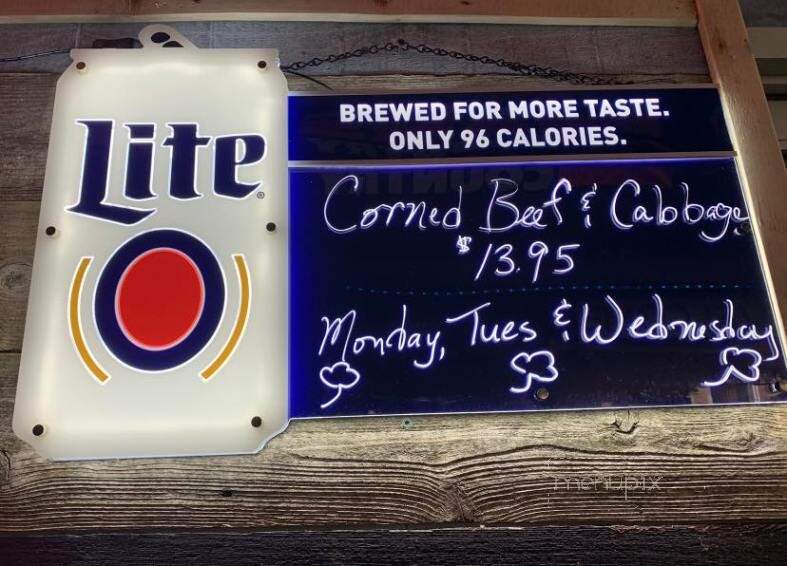 Lite
BREWED FOR MORE TASTE.
ONLY 96 CALORIES.
Corned Beef & Cabbage
$13.95
Monday, Tues & Wednesday
menupix